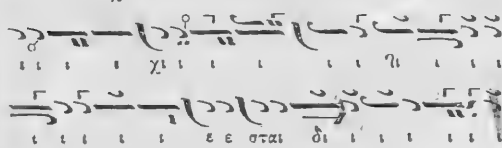 ι ι ι ι χι ι ι ι ι ι ηι ι ι ι
ι ι ι ι ι ε ε σται δι ι ι ι ι ι